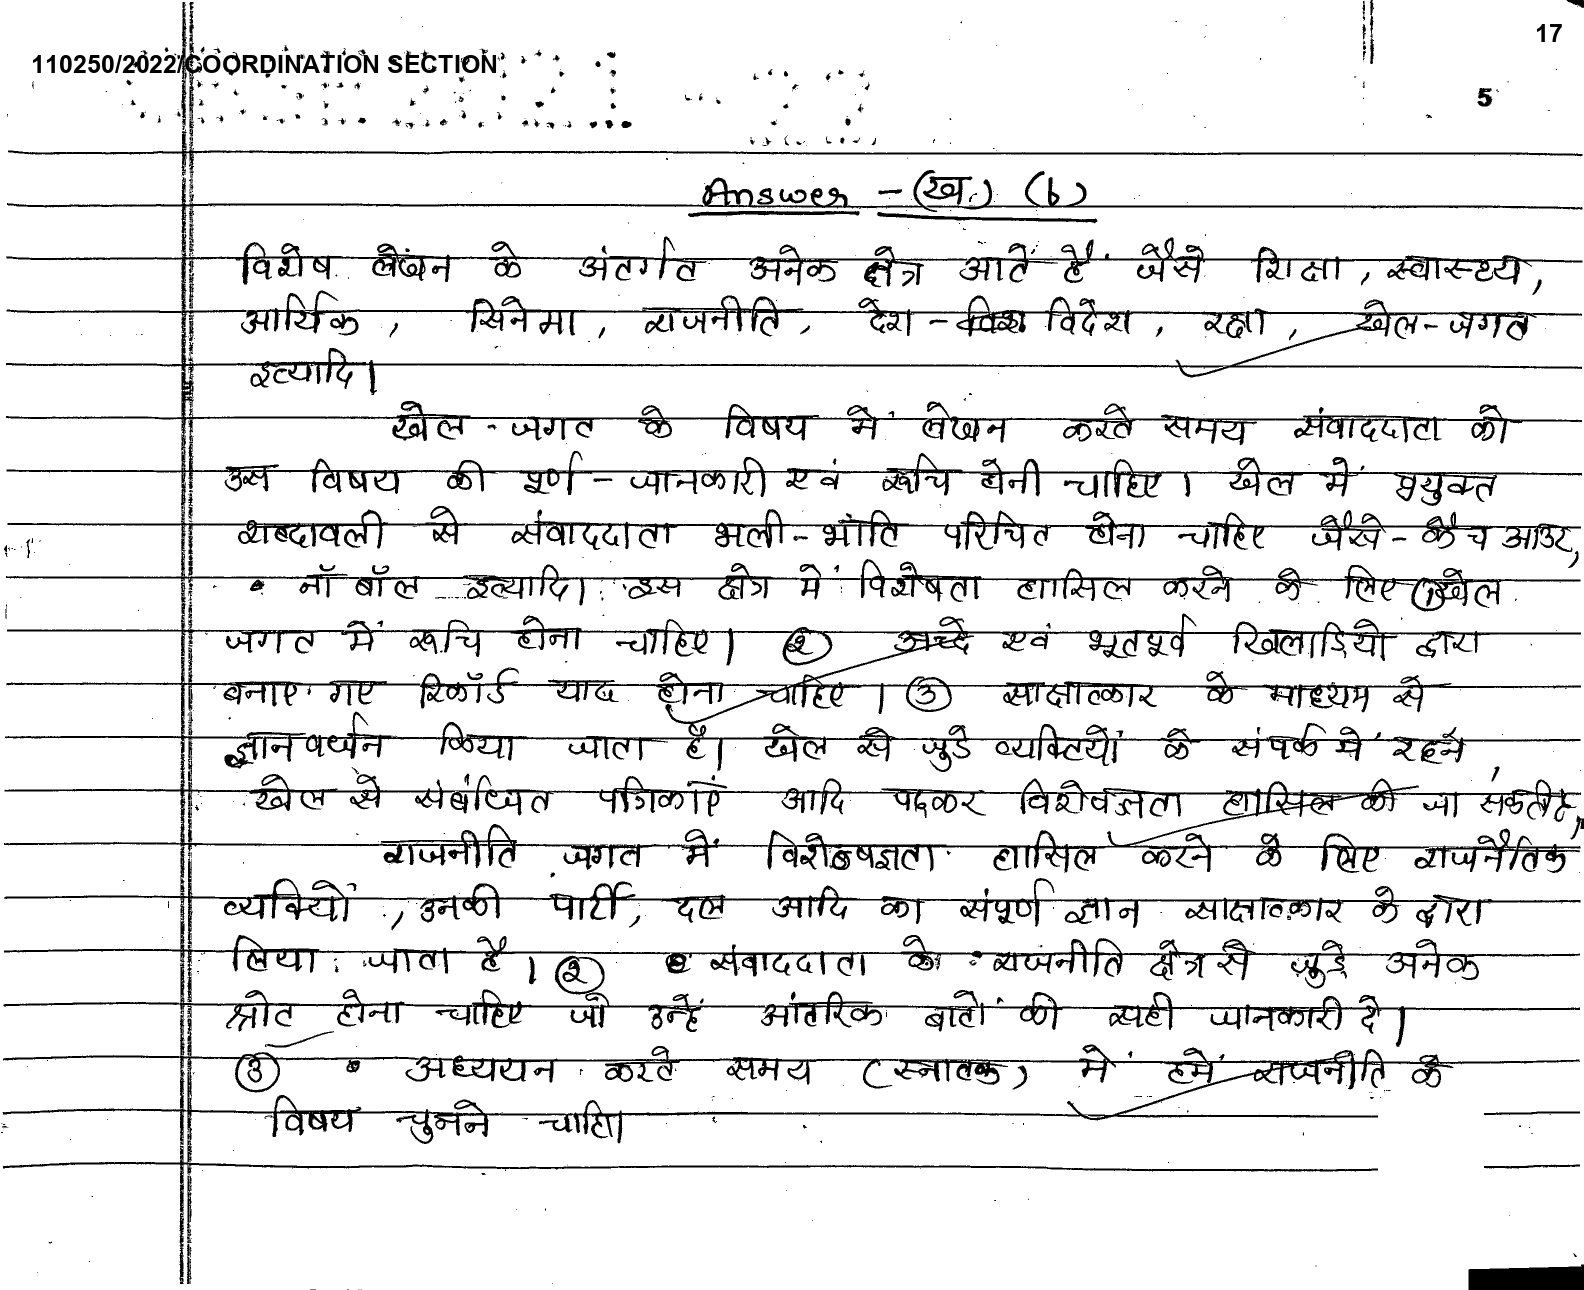 17
110250/2022/COORDINATION SECTION
5
Answer - (ख.) (b)
विशेष लेखन के अंतर्गत अनेक क्षेत्र आतें हैं जैसे शिक्षा, स्वास्थ्य,
आर्थिक, सिनेमा, राजनीति, देश - विदेश, रक्षा, खेल-जगत
इत्यादि।
खेल-जगत के विषय में लेखन करते समय संवाददाता को
उस विषय की पूर्ण-जानकारी एवं रूचि होनी चाहिए। खेल में प्रयुक्त
शब्दावली से संवाददाता भली-भाँति परिचित होना चाहिए जैसे- कैच आउट,
नॉ बॉल इत्यादि। इस क्षेत्र में विशेषता हासिल करने के लिए (1) खेल
जगत में रूचि होना चाहिए। (2) अच्छे एवं भूतपूर्व खिलाड़ियो द्वारा
बनाए गए रिकॉर्ड याद होना चाहिए। (3) साक्षात्कार के माध्यम से
ज्ञानवर्धन किया जाता है। खेल से जुड़े व्यक्तियों के संपर्क में रहने,
खेल से संबंधित पत्रिकाएं आदि पढ़कर विशेषज्ञता हासिल की जा सकती है,
राजनीति जगत में विशेषज्ञता हासिल करने के लिए राजनैतिक
व्यक्तियों, उनकी पार्टी, दल आदि का संपूर्ण ज्ञान साक्षात्कार के द्वारा
लिया जाता है। (2) संवाददाता के राजनीति क्षेत्र से जुड़े अनेक
श्रोत होना चाहिए जो उन्हें आंतरिक बातों की सही जानकारी दे।
(3) अध्ययन करते समय (स्नातक) में हमें राजनीति के
विषय चुनने चाहि।